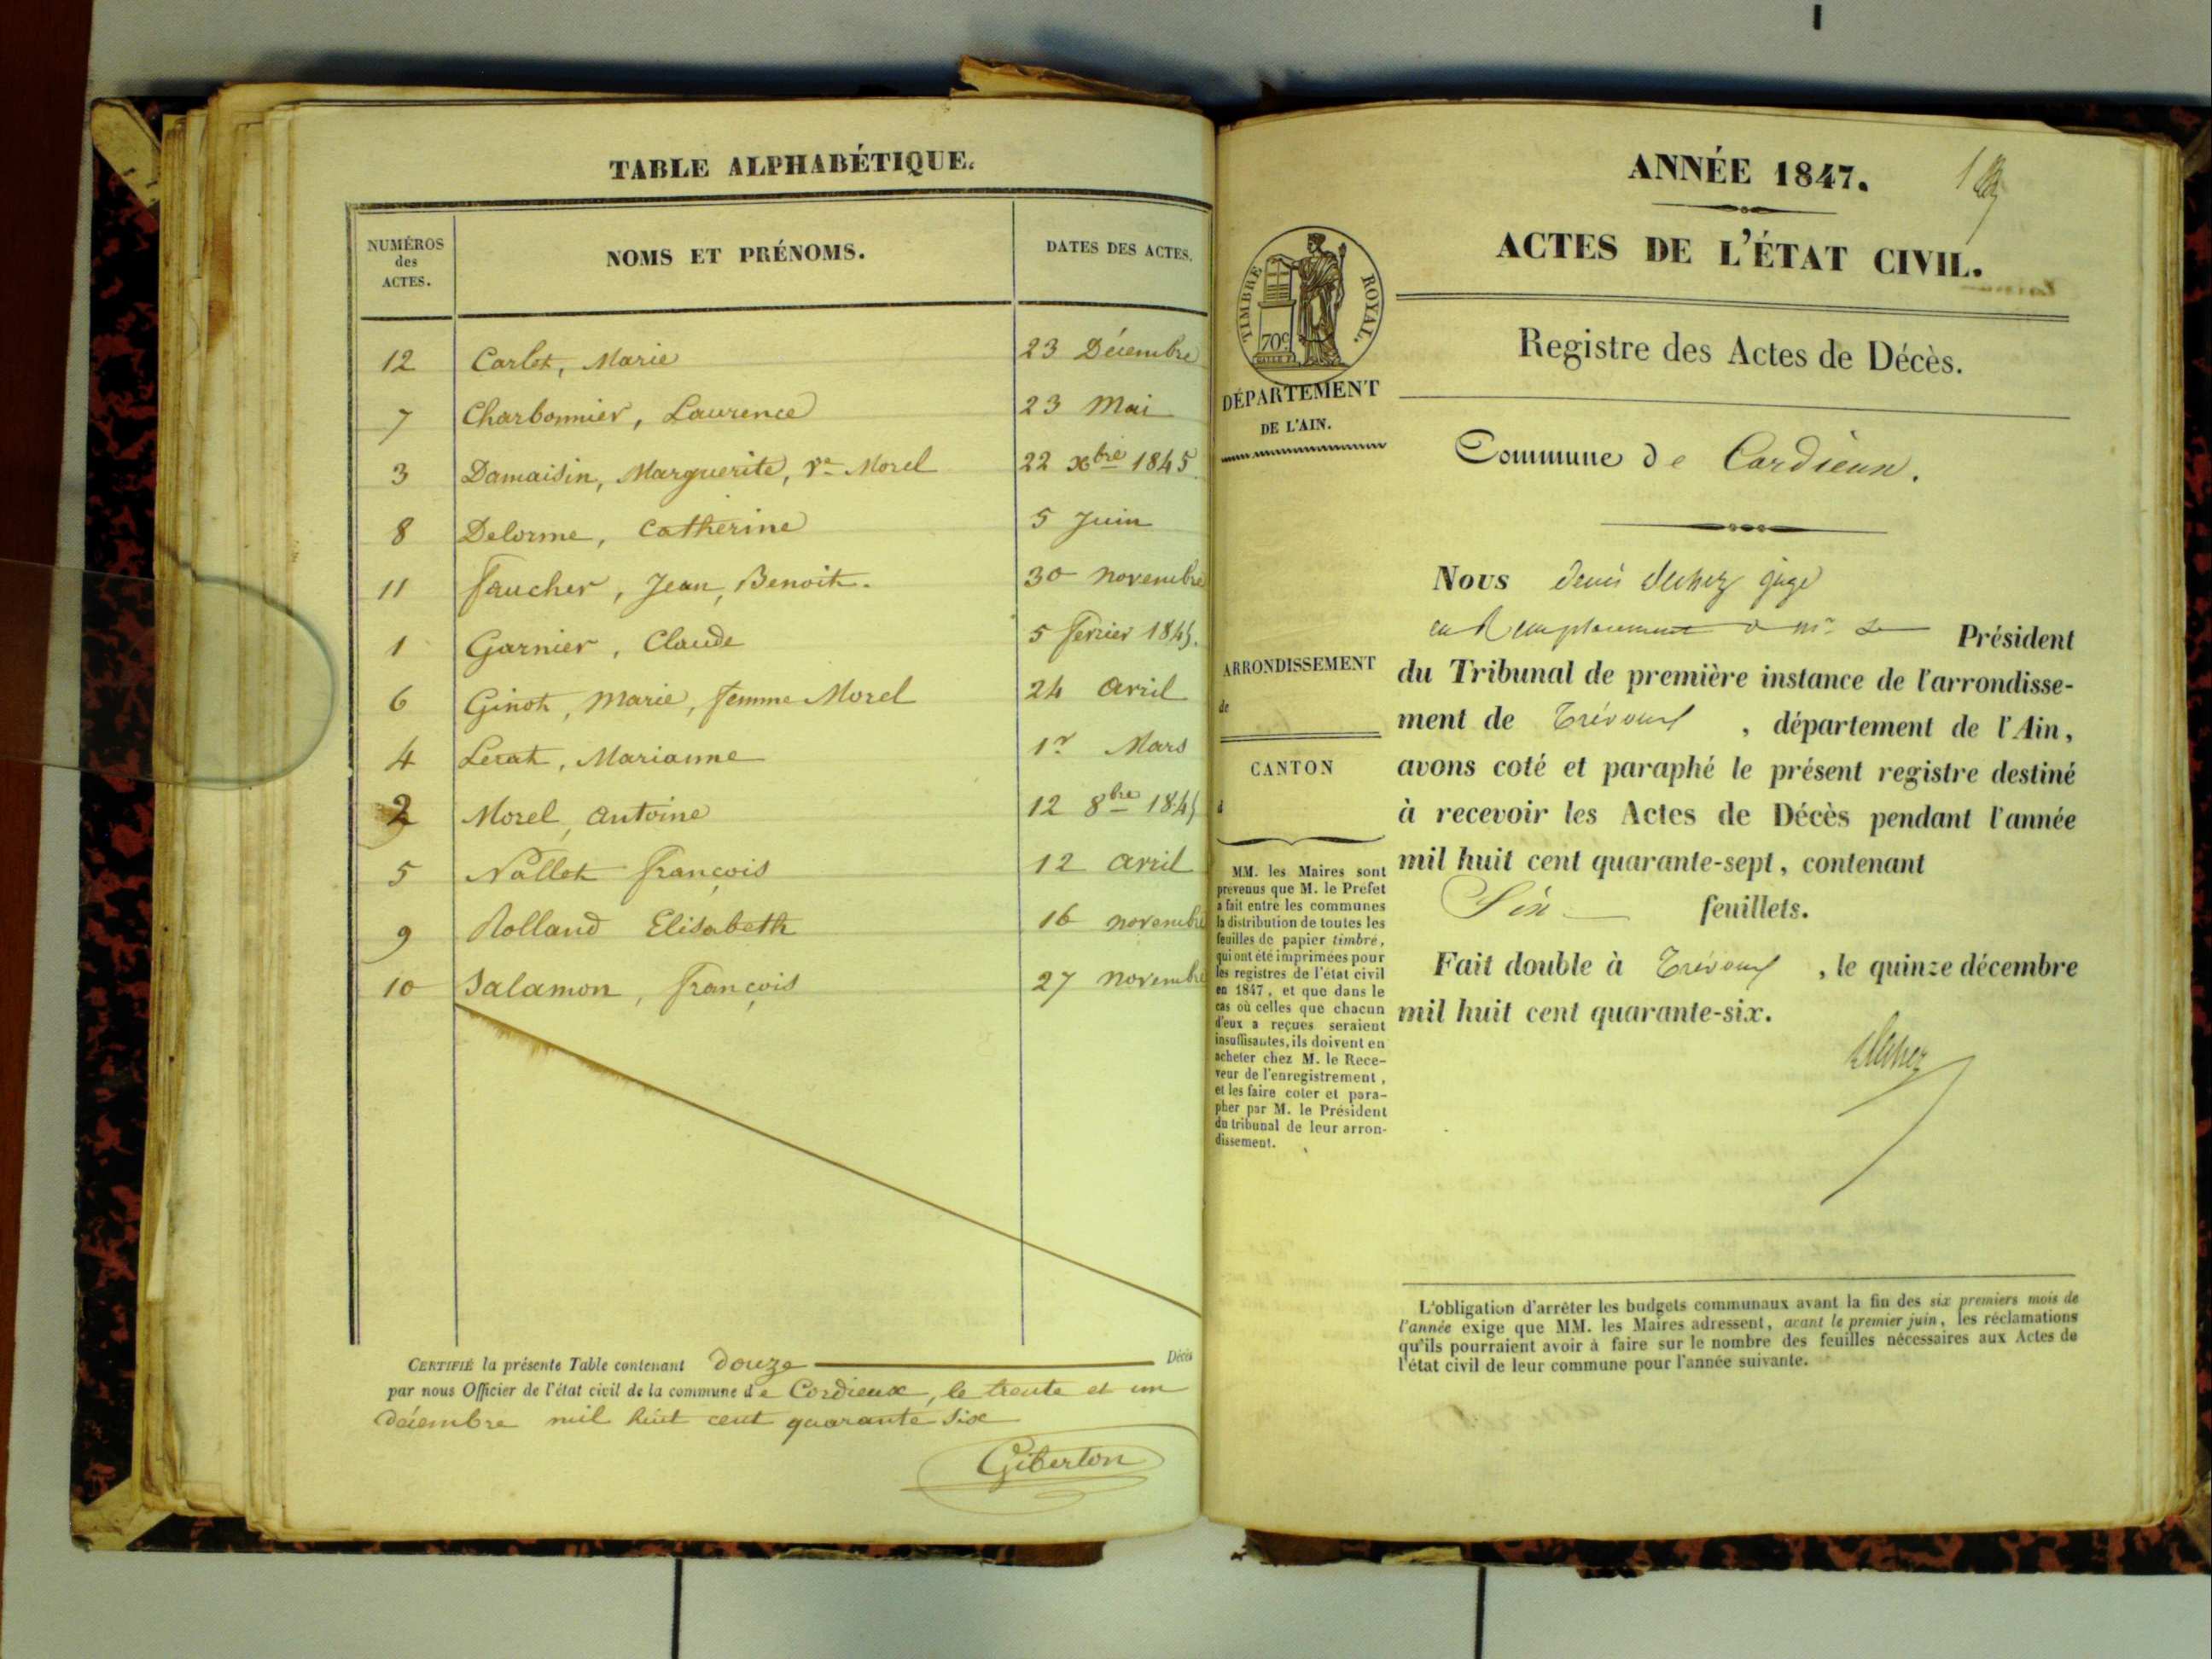 TABLE ALPHABÉTIQUE.
NUMÉROS des ACTES. NOMS ET PRÉNOMS. DATES DES ACTES.
12 Carlet, Marie 23 Décembre
7 Charbonnier, Laurence 23 Mai
3 Damaisin, Marguerite, Ve Morel 22 xbre 1845
8 Delorme, Catherine 5 Juin
11 Faucher, Jean, Benoit. 30 novembre
1 Garnier, Claude 5 fevrier 1845.
6 Ginot, Marie, femme Morel 24 avril
4 Lerat, Marianne 1r Mars
2 Morel, Antoine 12 8bre 1845
5 Nallet françois 12 avril
9 Rolland Elisabeth 16 novembre
10 Salamon, françois 27 novembre
CERTIFIÉ la présente Table contenant douze Décès
par nous Officier de l'état civil de la commune de Cordieux, le trente et un
décembre mil huit cent quarante six
Giberton
ANNÉE 1847.
ACTES DE L'ÉTAT CIVIL.
TIMBRE ROYAL.
70c
Registre des Actes de Décès.
DÉPARTEMENT
DE L'AIN.
Commune de Cordieux.
Nous Denis juge
en Remplacement Président
du Tribunal de première instance de l'arrondisse-
ment de Trévoux, département de l'Ain,
avons coté et paraphé le présent registre destiné
à recevoir les Actes de Décès pendant l'année
mil huit cent quarante-sept, contenant
Six feuillets.
Fait double à Trévoux, le quinze décembre
mil huit cent quarante-six.
ARRONDISSEMENT
de
CANTON
d
MM. les Maires sont
prévenus que M. le Préfet
a fait entre les communes
la distribution de toutes les
feuilles de papier timbré,
qui ont été imprimées pour
les registres de l'état civil
en 1847, et que dans le
cas où celles que chacun
d'eux a reçues seraient
insuffisantes, ils doivent en
acheter chez M. le Rece-
veur de l'enregistrement,
et les faire coter et para-
pher par M. le Président
du tribunal de leur arron-
dissement.
L'obligation d'arrêter les budgets communaux avant la fin des six premiers mois de
l'année exige que MM. les Maires adressent, avant le premier juin, les réclamations
qu'ils pourraient avoir à faire sur le nombre des feuilles nécessaires aux Actes de
l'état civil de leur commune pour l'année suivante.